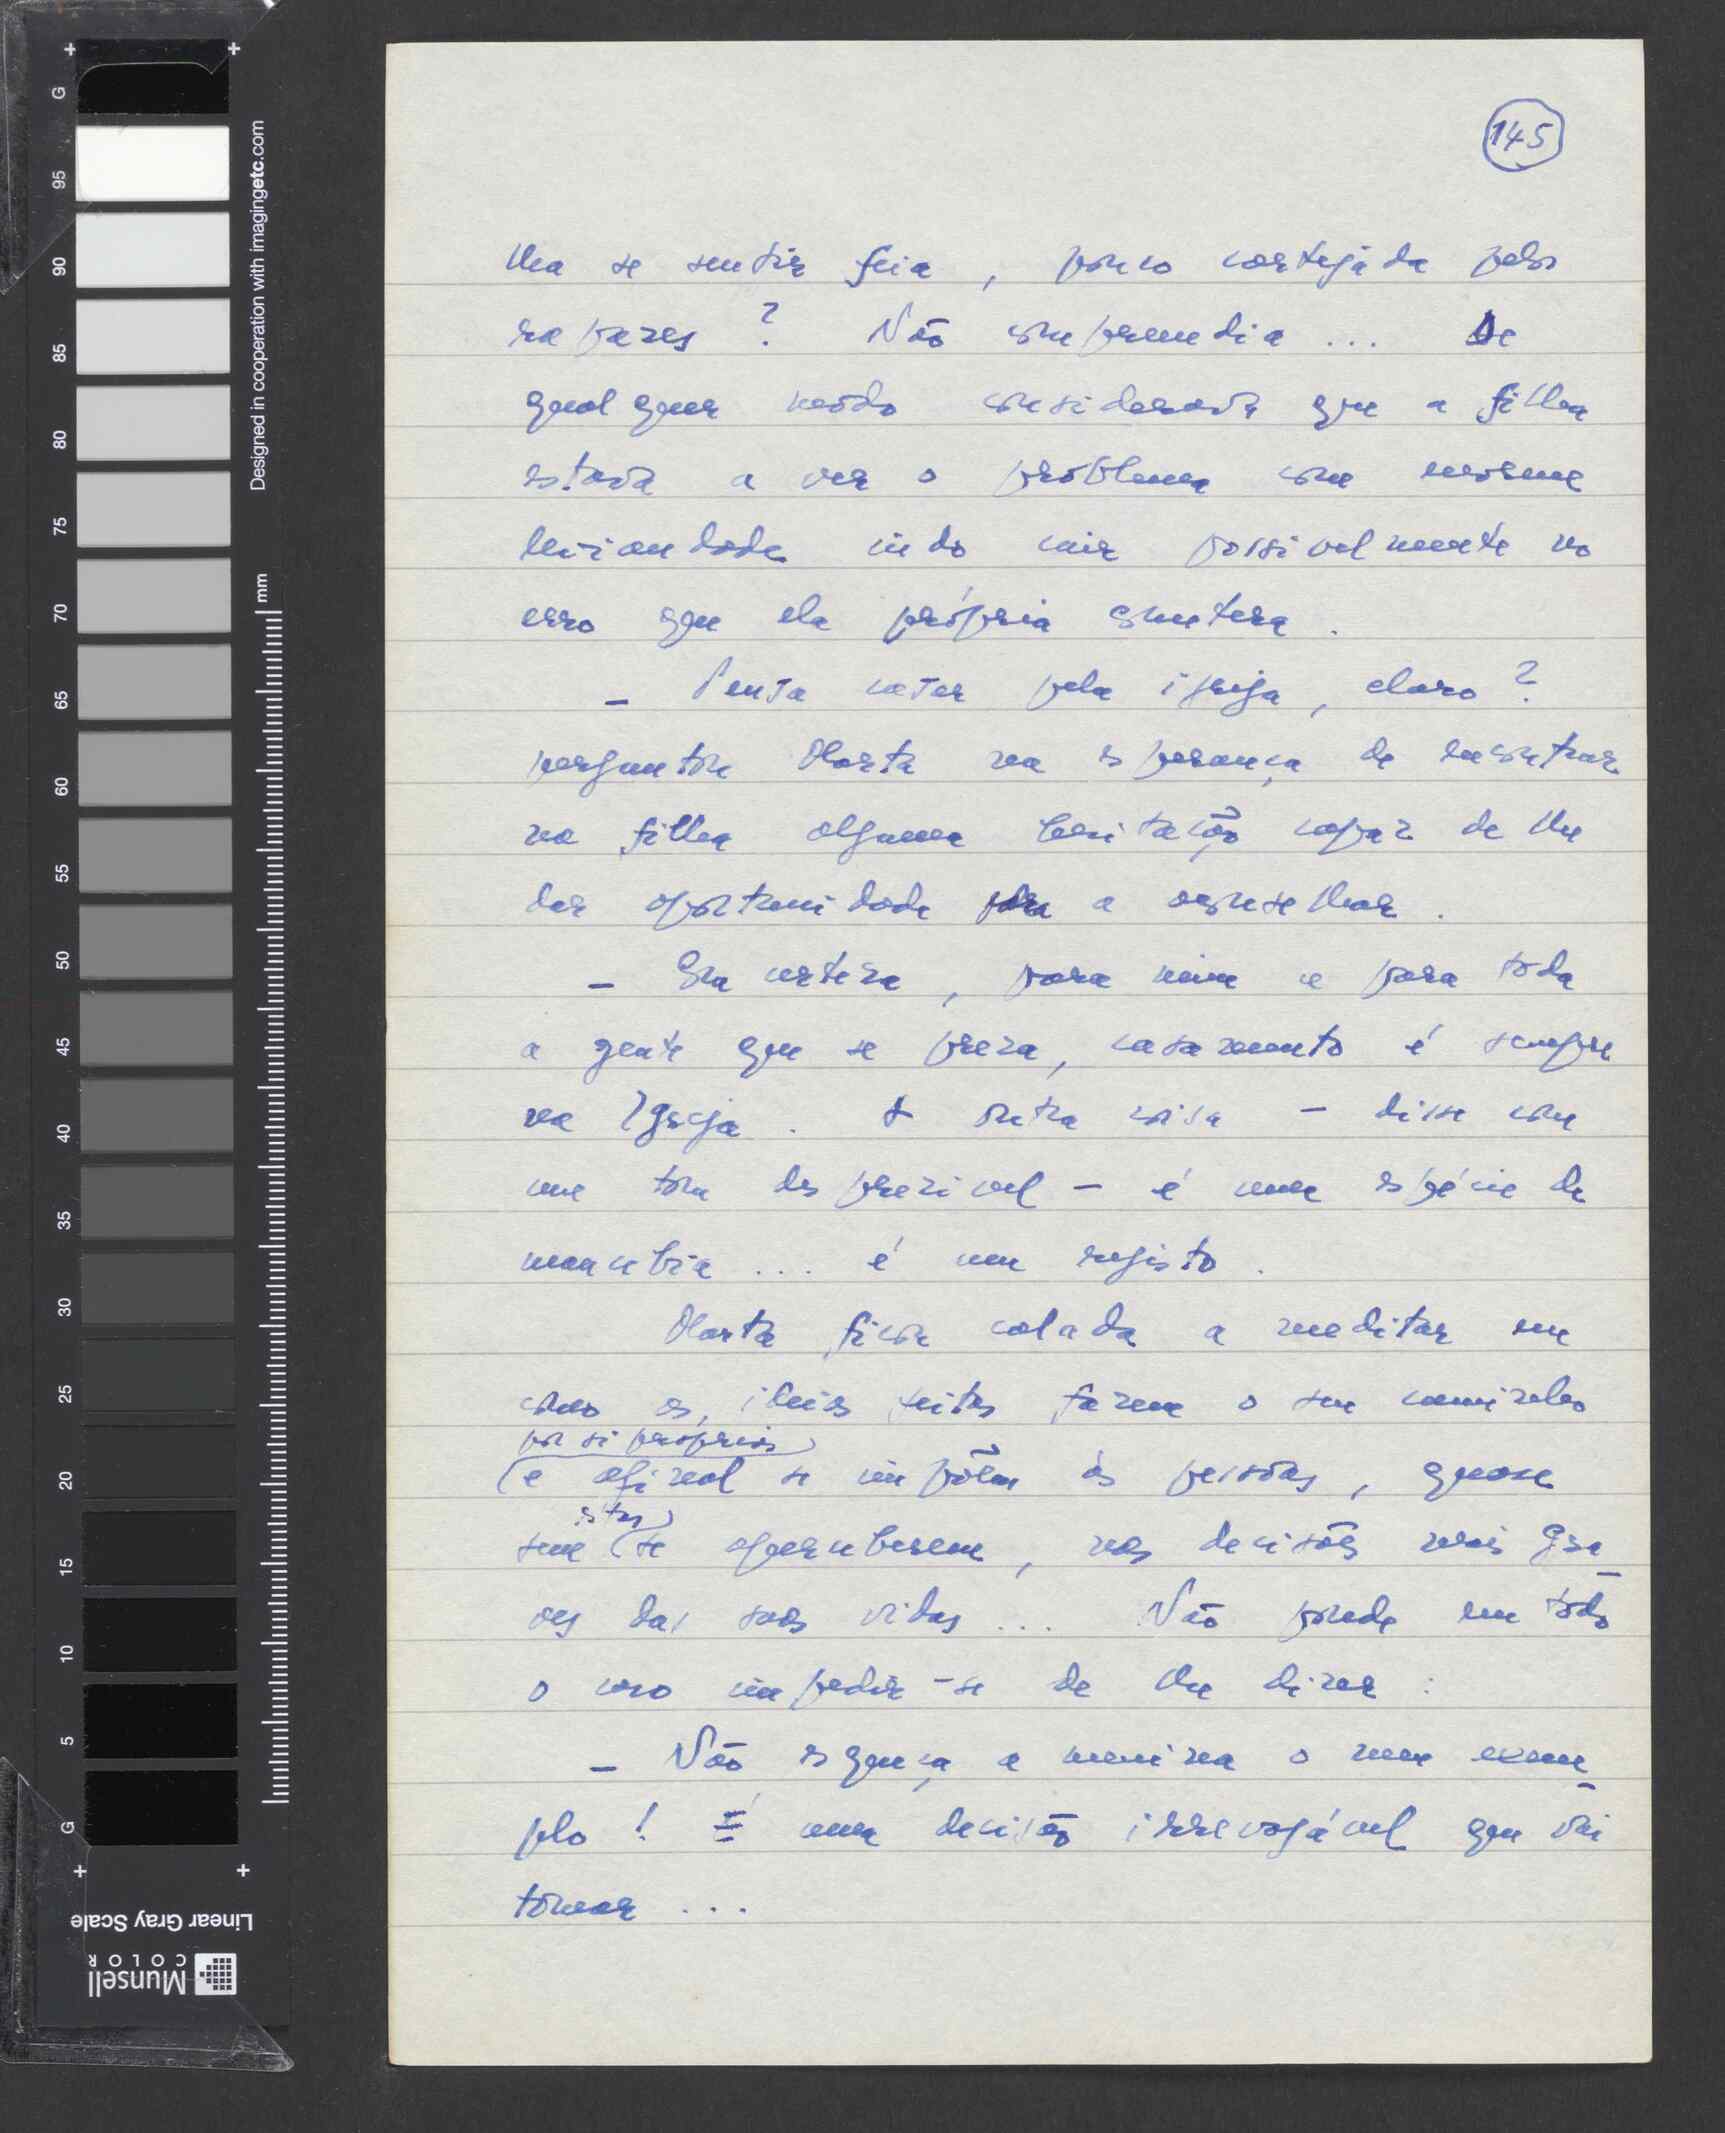 145
lha se sentir feia, pouco cortejada pelos
rapazes? Não compreendia... De
qualquer modo considerava que a filha
estava a ver o problema com enorme
leviandade indo cair possivelmente no
erro que ela própria cometera.
— Pensa casar pela igreja, claro?
perguntou Marta na esperança de encontrar
na filha alguma hesitação capaz de lhe
dar oportunidade para a aconselhar.
— Com certeza, para mim e para toda
a gente que se preza, casamento é sempre
na Igreja. A outra coisa — disse com
um tom desprezivel — é uma espécie de
mancebia... é um registo.
Marta ficou calada a meditar em
como as ideias feitas fazem o seu caminho
por si próprias
e afinal se impõem às pessoas, quase
estas
sem se aperceberem, nas decisões mais gra-
ves das suas vidas... Não poude em todo
o caso impedir-se de lhe dizer:
— Não esqueça a menina o meu exem-
plo! É uma decisão irrevogável que vai
tomar...
Designed in cooperation with imagingetc.com
mm
G 95 90 85 80 75 70 65 60 55 50 45 40 35 30 25 20 15 10 5 G
Linear Gray Scale
Munsell
COLOR